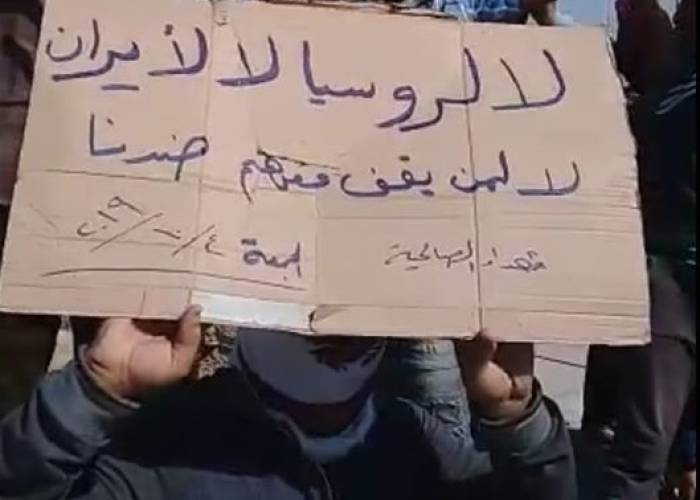 لا لروسيا لا لأيران
لا لمن يقف معهم ضدنا
شهداء الصالحية الجمعة ٤/١٠/٢٠١٩